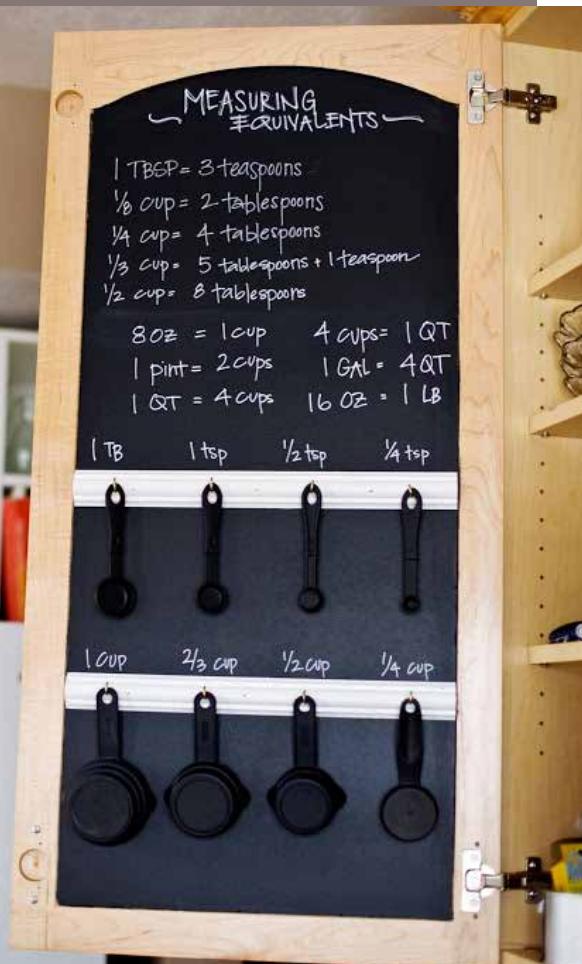 MEASURING
EQUIVALENTS
1 TBSP = 3 teaspoons
1/8 cup = 2 tablespoons
1/4 cup = 4 tablespoons
1/3 cup = 5 tablespoons + 1 teaspoon
1/2 cup = 8 tablespoons
8 oz = 1 cup
1 pint = 2 cups
1 QT = 4 cups
4 cups = 1 QT
1 GAL = 4 QT
16 OZ = 1 LB
1 TB 1 tsp 1/2 tsp 1/4 tsp
1 cup 2/3 cup 1/2 cup 1/4 cup